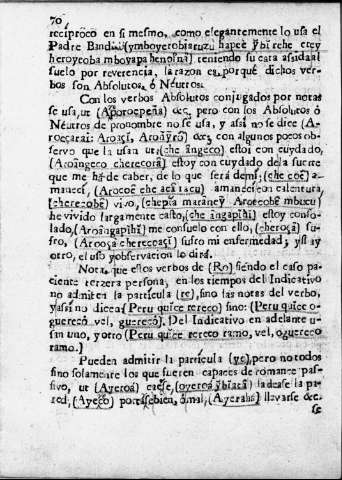 70
reciproco en si mesmo, como elegantemente lo usa el
Padre Bandini (ymboyerobiaruzu hapeè ỹbĩ rehe erey
heroyroba mboyapa henoĩna) teniendo su cara assida al
suelo por reverencia, la razon es, porqué dichos ver-
bos son Absolutos, ó Néutros.
Con los verbos Absolutos conjugados por notas
se usa, ut (Aporoepeña) &c, pero con los Absolutos ó
Néutros de pronombre no se usa, y assi no se dice (A-
roeçarai: Aroaçĩ, Aroãỹrõ) &c, con algunos pocos ob-
servo que la usan ut: (che ãngeco) estoi con cuydado,
(Aroãngeco cherecorã) estoy con cuydado de la suerte
que me há de caber, de lo que será demi; (che coẽ) a-
maneci, (Arocoẽ che acã tacu) amaneci con calentura,
(cherecobe) vivo, (chepĩa marãneỹ Arotecobe mbucu)
he vivido largamente casto, (che ãngapĩhĩ) estoy conso-
lado, (Aroãngapĩhĩ) me consuelo con ello, (cherosã) su-
fro, (Aroosã cherecoaçĩ) sufro mi enfermedad; y si ay
otro, el uso y observacion lo dirá.
Nota, que estos verbos de (Ro) siendo el caso pa-
ciente tercera persona, en los tiempos del Indicativo
no admiten la particula (re), sino las notas del verbo,
y assi no dicen (Peru quĩce rereco) sino: (Peru quĩce o-
guerecó vel, guerecó). Del Indicativo en adelante u-
san uno, y otro (Peru quĩce rereco ramo, vel, oguereco
ramo.)
Pueden admitir la particula (ye), pero no todos
sino solamente los que fueren capaces de romance pas-
sivo, ut (Ayeroá) caese, (oyeroá ỹbĩatã) ladease la pa-
red, (Ayeco) portase bien, ó mal, (Ayerahá) llevarse &c.
se